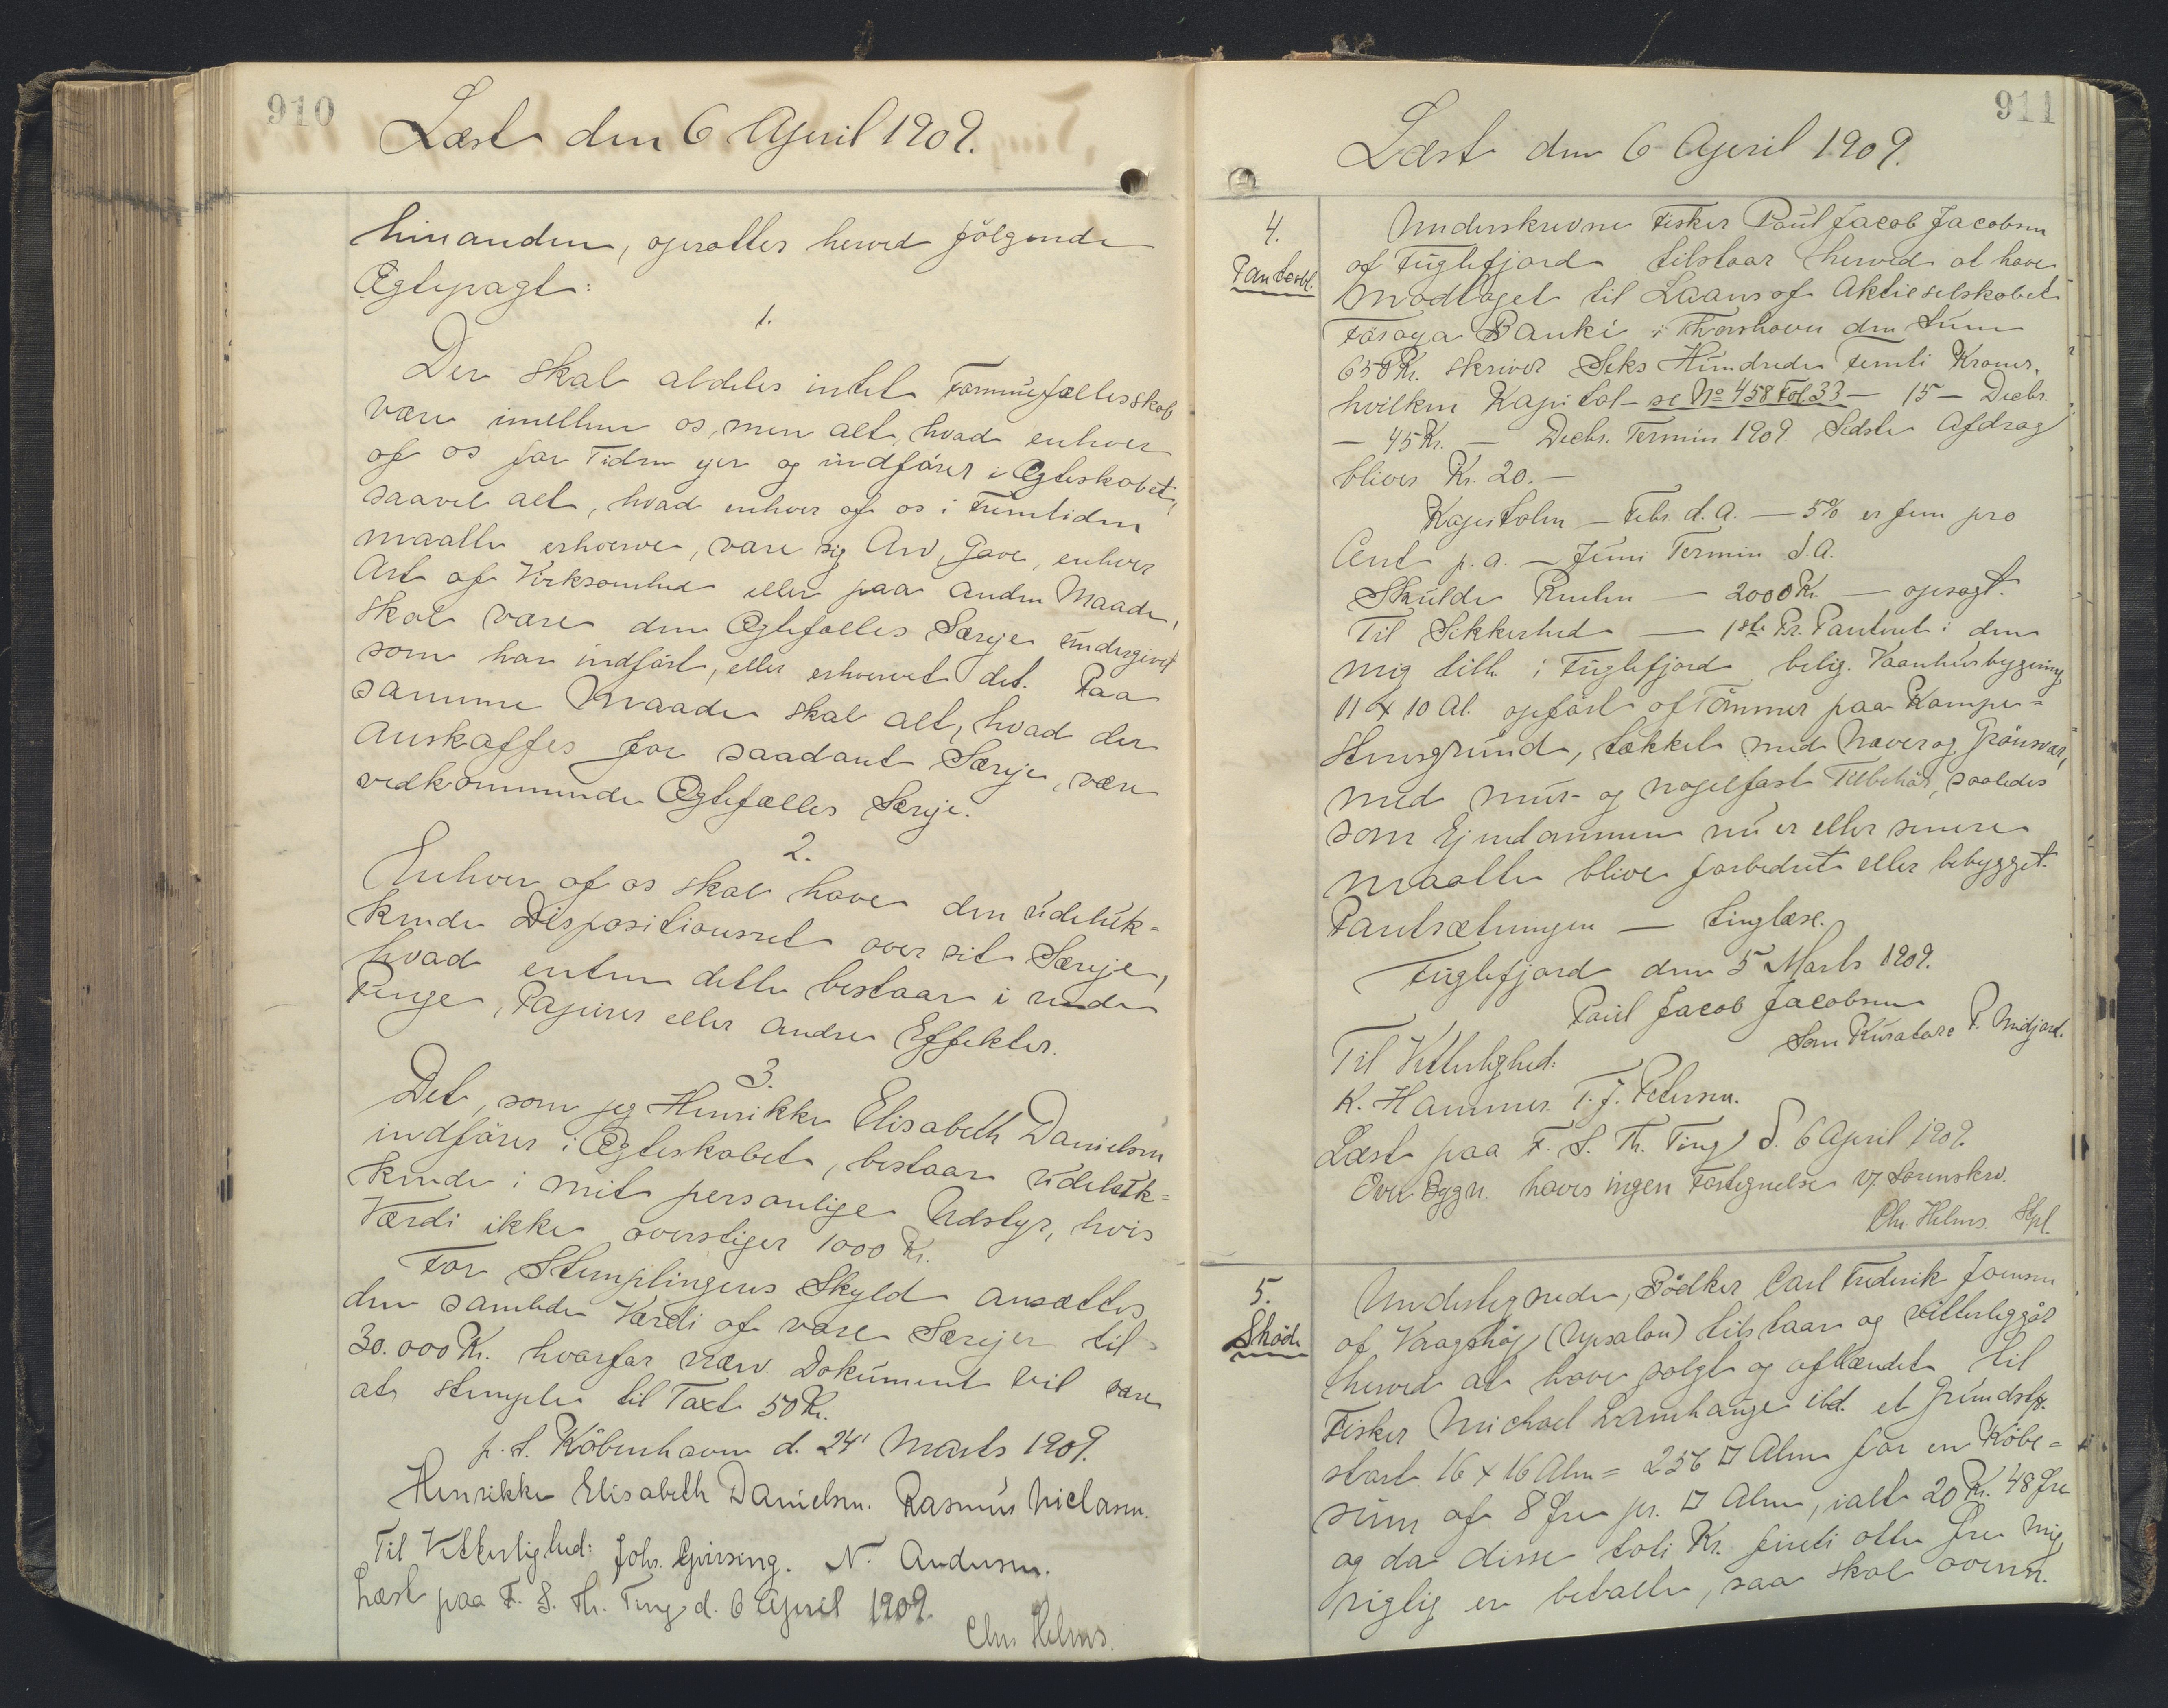 910
Læst den 6 April 1909.
hinanden, oprettes herved følgende
Ægtepagt:
1.
Der skal aldeles intet Formuefællesskab
være imellem os, men alt, hvad enhver
af os for Tiden ejer og indfører i Ægteskabet,
saavel alt, hvad enhver af os i Fremtiden
maatte erhverve, være sig Arv, Gave, enhver
Art af Virksomhed eller paa anden Maade,
skal være den Ægtefælles Særeje undergivet
som har indført, eller erhvervet det. Paa
samme Maade skal alt, hvad der
Anskaffes for saadant Særeje, være
vedkommende Ægtefælles Særeje.
2.
Enhver af os skal have den udeluk-
kende Dispositionsret over sit Særeje,
hvad enten dette bestaar i rede
Penge, Papirer eller andre Effekter.
3.
Det, som jeg Henrikke Elisabeth Danielsen
indfører i Ægteskabet, bestaar udeluk=
kende i mit personlige Udstyr, hvis
Værdi ikke overstiger 1000 Kr.
For Stemplingens Skyld ansættes
den samlede Værdi af vore Særejer til
30.000 Kr. hvorfor nærv. Dokument vil være
at stemple til Taxt 50 Kr.
p. t. København d. 24' Marts 1909.
Henrikke Elisabeth Danielsen. Rasmus Niclasen.
Til Vitterlighed: Johs. N. Andersen.
Læst paa F. S. Th. Ting d. 6 April 1909.
Chr. Helms.
911
Læst den 6 April 1909.
4.
Panteobl.
Underskrevne Fisker Paul Jacob Jacobsen
af Fuglefjord tilstaar herved at have
modtaget til Laans af Aktieselskabet
Føroya Banki i Thorshavn den Sum
650 Kr. skriver Seks Hundrede Femti Kroner,
hvilken Kapital - se No 458 Fol 33 - 15 - Decbr.
- 45 Kr. - Decbr. Termin 1909. Sidste Afdrag
bliver Kr. 20. -
Kapitalen - Febr. d. A. - 5% er fem pro
Cent p. a. - Juni Termin d. A.
Skulde Renten - 2000 Kr. - opsagt.
Til Sikkerhed - 1ste Pr. Panteret i den
mig tilh. i Fuglefjord belig. Vaanhusbygning
11 x 10 Al. opført af Tømmer paa Kampe=
stensgrund, tækket med Næver og Grønsvær,
med mur- og nagelfast Tilbehør, saaledes
som Ejendommen nu er eller senere
maatte blive forbedret eller bebygget.
Pantsætningen - tinglæse.
Fuglefjord den 5 Marts 1909.
Paul Jacob Jacobsen
Som Kurator P. Midjord.
Til Vitterlighed:
K. Hammer. T. J. Petersen.
Læst paa F. S. Th. Ting d. 6 April 1909.
Over Byggn. haves ingen Fortegnelse v/ Sorenskrv.
Chr. Helms. Stpl.
5.
Skøde
Undertegnede, Bødker Carl Frederik Joensen
af Vaagshøj (Upsalon) tilstaar og vitterliggør
herved at have solgt og afhændet til
Fisker Michael Lamhauge ibd. et Grundstk.
stort 16 x 16 Alen = 256 □ Alen for en Købe=
sum af 8 Øre pr. □ Alen, ialt 20 Kr. 48 Øre
og da disse toti Kr. fireti otte Øre mig
rigtig er betalte, saa skal ovenn.